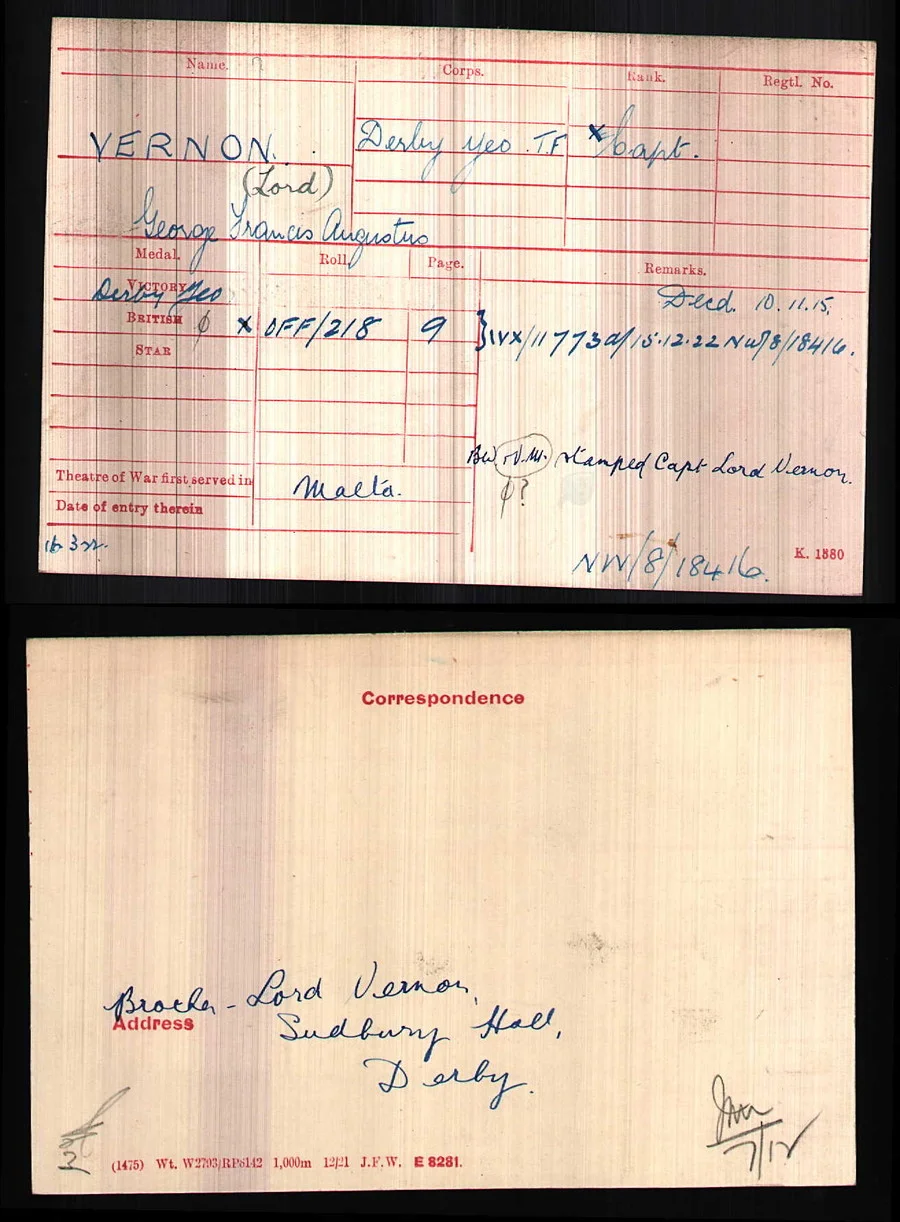 Name. Corps. Rank. Regtl. No.
VERNON. Derby Yeo. T.F x Capt.
(Lord)
George Francis Augustus
Medal. Roll. Page. Remarks.
VICTORY Decd. 10.11.15.
Derby Yeo
BRITISH φ x OFF/218 9 } IVX/11773 d/15.12.22 NW/8/18416.
STAR
BW + V.M. stamped Capt Lord Vernon.
φ?
Theatre of War first served in Malta.
Date of entry therein
K. 1380
NW/8/18416.
Correspondence
Brother - Lord Vernon,
Address Sudbury Hall,
Derby.
2
7/12
(1475) Wt. W2793/RP6142 1,000m 12/21 J.F.W. E 8281.